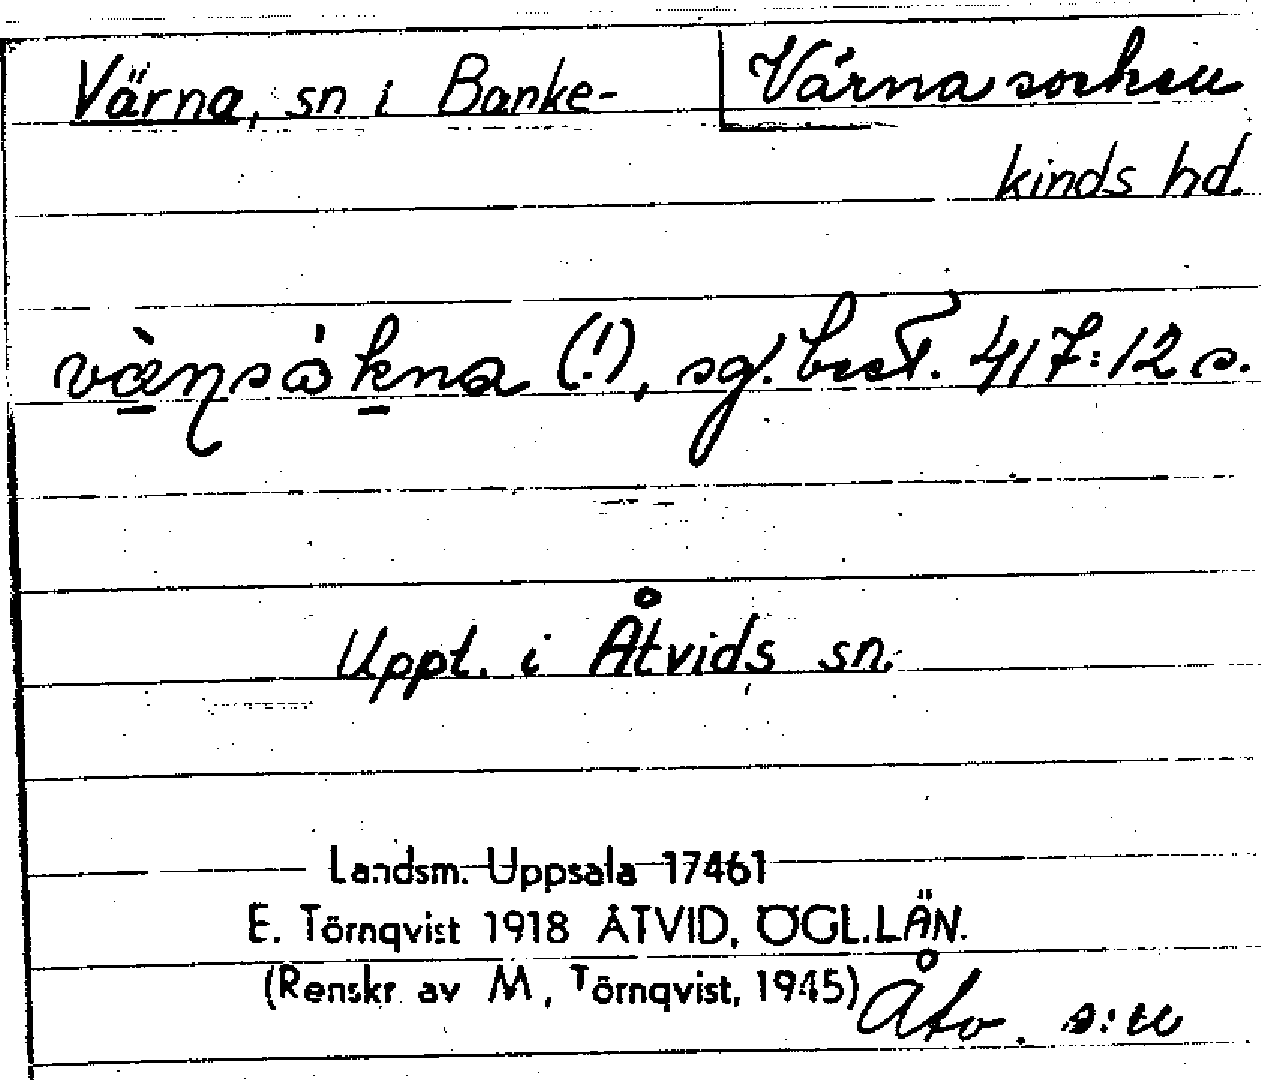 Värna, sn i Banke-
Värna socken
kinds hd.
vä̀ṇsåkna (!), sg. best. 417:12 s.
Uppt. i Åtvids sn.
Landsm. Uppsala 17461
E. Törnqvist 1918 ÅTVID, ÖGL.LÄN.
(Renskr. av M. Törnqvist, 1945)
Åtv. s:n